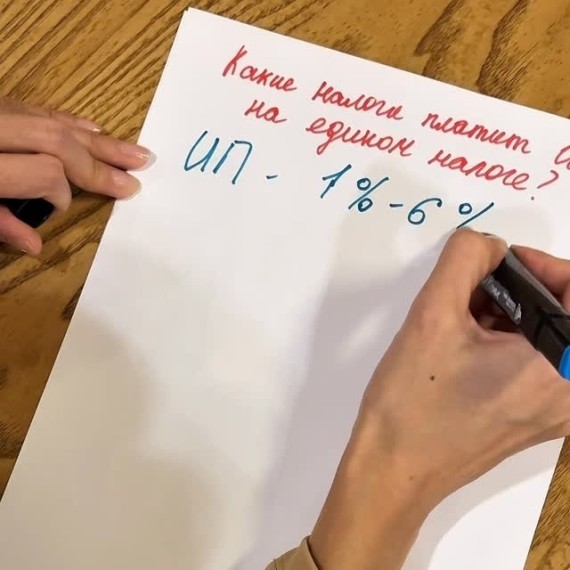 Какие налоги платит
на едином налоге?
ИП - 1% - 6%